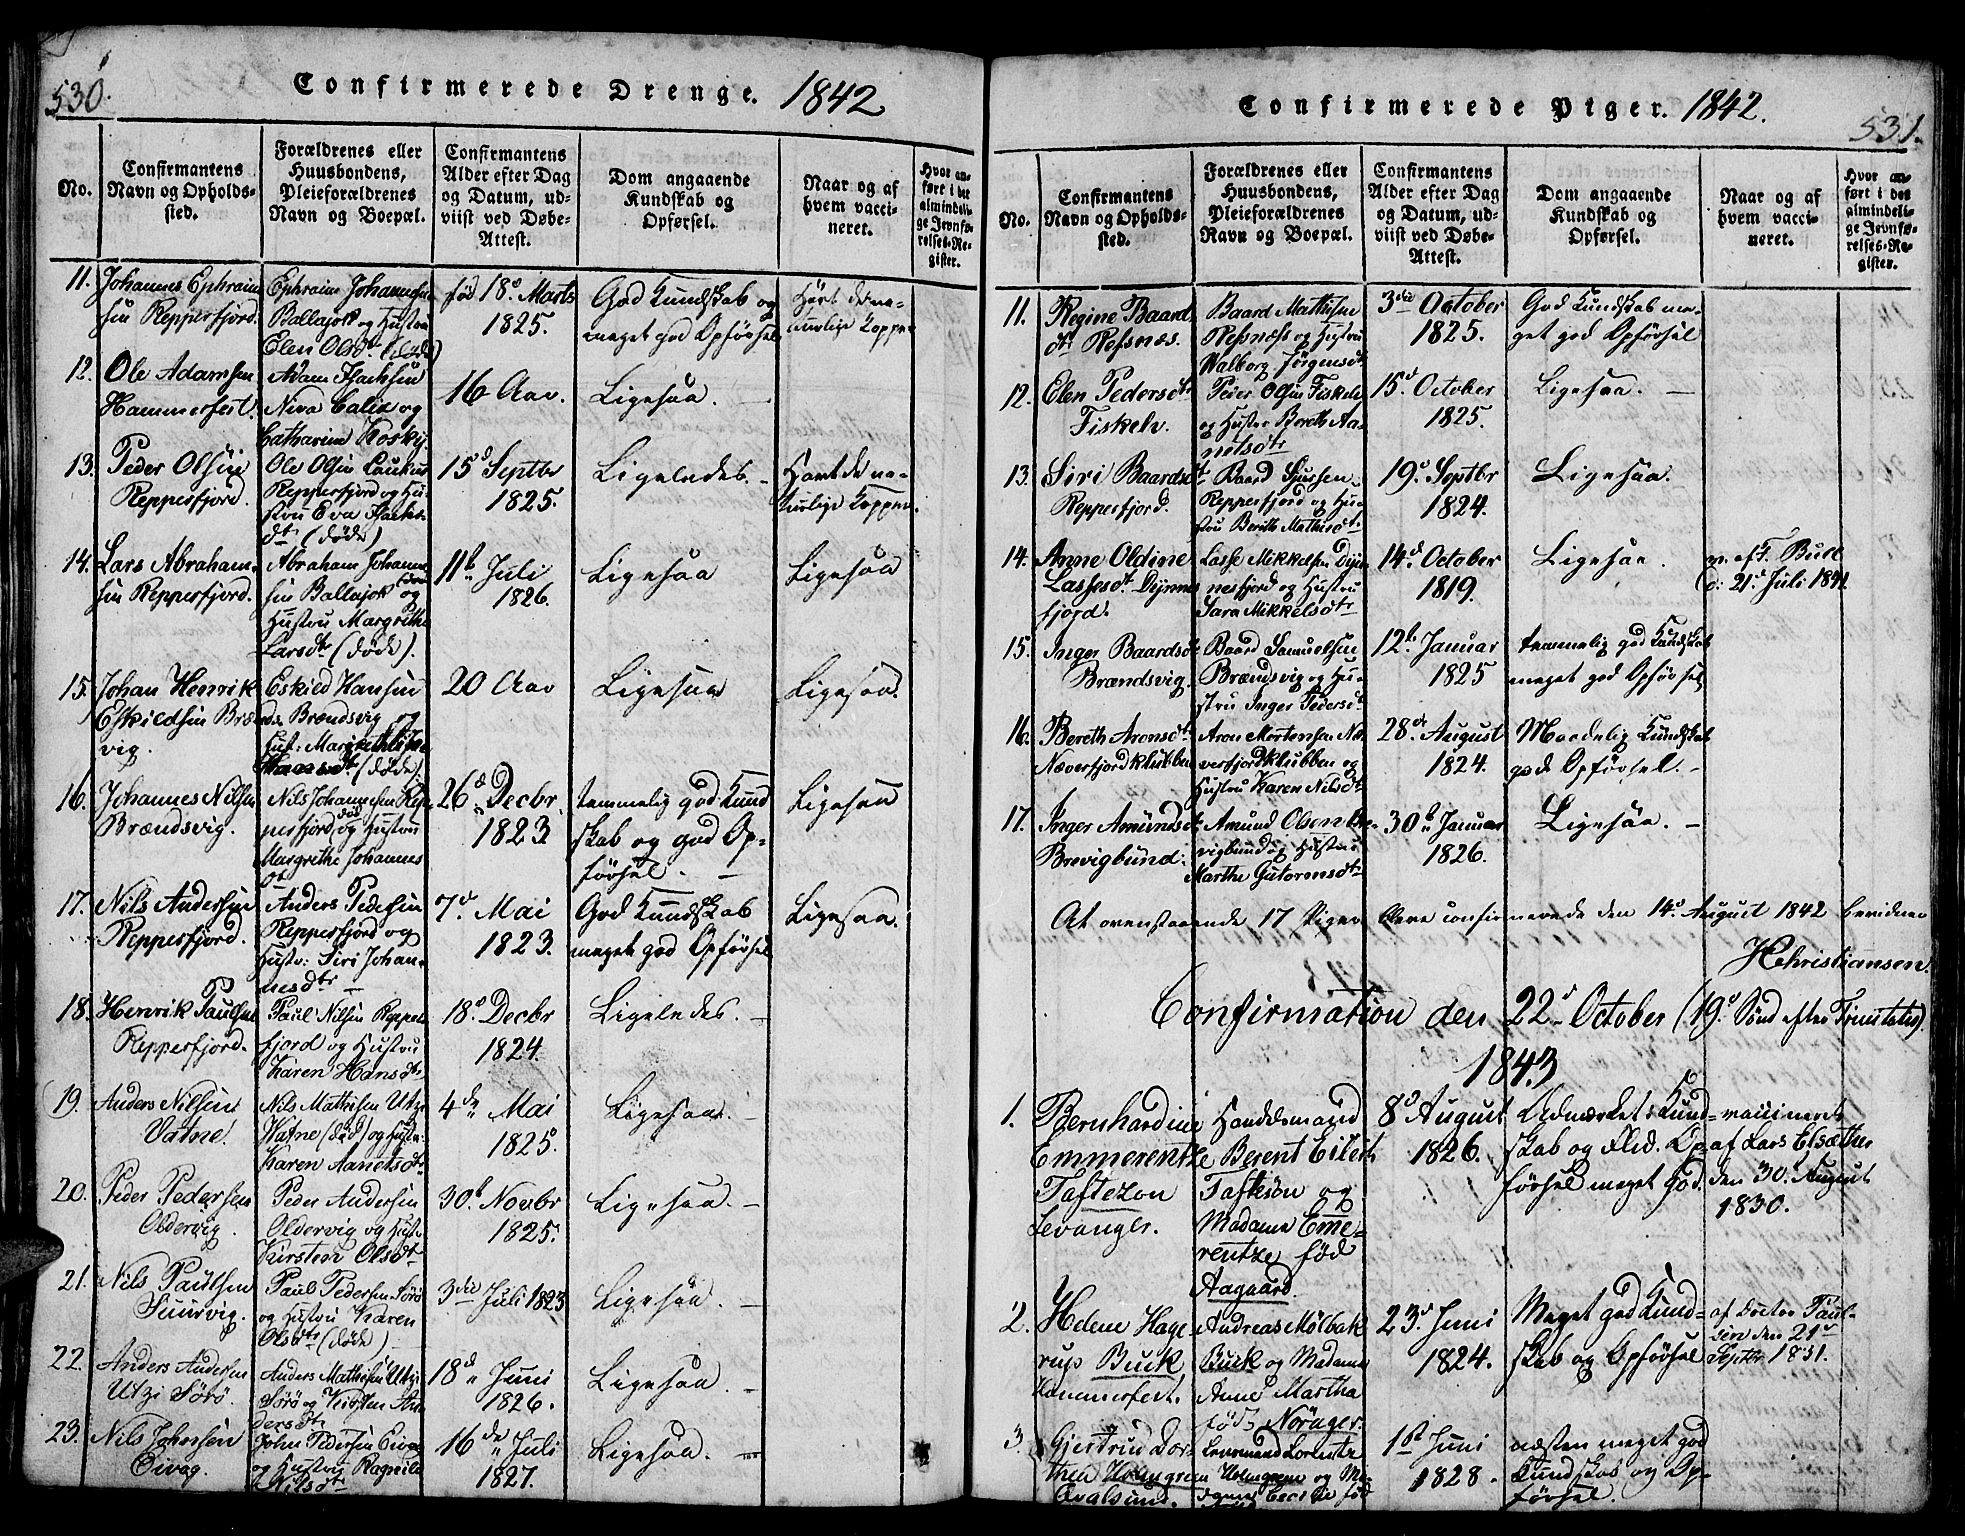 530.
Confirmerede Drenge. 1842
No.
Confirmantens
Navn og Opholds-
sted.
Forældrenes eller
Huusbondens,
Pleieforældrenes
Navn og Boepæl.
Confirmantens
Alder efter Dag
og Datum, ud-
viist ved Døbe-
Attest.
Dom angaaende
Kundskab og
Opførsel.
Naar og af
hvem vacci-
neret.
Hvor an-
ført i det
almindeli-
ge Jevnfø-
relses-Re-
gister.
11.
Johannes Ephraim
sen Repperfjord.
Ephraim Johannesen
Ballajok og Hustru
Elen Olsdtr (døde)
fød 18de Marts
1825.
God Kundskab og
meget god Opførsel
Havt de na-
turlige Kopper
12.
Ole Adamsen
Hammerfest.
Adam Isachsen
Niva Calix og
Catharina Kosky
16 Aar.
Ligesaa.
13.
Peder Olsen
Repperfjord.
Ole Olsen
Repperfjord og Hu-
stru Eva Isachs
dtr (døde)
15d Septbr
1825.
Ligeledes.
Havt de na-
turlige Kopper.
14.
Lars Abraham-
sen Repperfjord.
Abraham Johanne
sen Ballajok og
Hustru Margrethe
Larsdtr (døde).
11te Juli
1826.
Ligesaa
Ligesaa
15.
Johan Henrik
Eskildsen Brænds
vig.
Eskild Hansen
Brændsvig og
Hust:
(døde)
20 Aar
Ligesaa
Ligesaa.
16.
Johannes Nilsen
Brændsvig.
Nils Johannesen Rep-
perfjord og Hustru
Margrethe Johannes
dtr
26d Decbr.
1823
temmelig god Kund
skab og god Op-
førsel.
Ligesaa
17.
Nils Andersen
Repperfjord.
Anders Pedersen
Repperfjord og
Hustr: Siri Johan-
nesdtr
7d Mai
1823.
God Kundskab
meget god Opførsel
Ligesaa.
18.
Henrik Paulsen
Repperfjord.
Paul Nilsen Repper
fjord og Hustru
Karen Hansdtr
18d Decbr
1824.
Ligeledes.
19.
Anders Nilsen
Vatne.
Nils Mathisen Utzi
Vatne (død) og Hustr:
Karen Aanetsdtr
4de Mai
1825.
Ligesaa.
20.
Peder Pedersen
Oldervig.
Peder Andersen
Oldervig og Hustr:
Kirsten Olsdtr
30te Novbr
1825.
Ligesaa.
21.
Nils Paulsen
Tuurvig.
Paul Pedersen Sørø
og Hustru Karen
Olsdtr (døde)
3die Juli 1823
Ligesaa.
22.
Anders Andersen
Utzi Sørø.
Anders Mathisen Utzi
Sørø og Kirsten An-
dersdtr
18d Juni
1826.
Ligesaa.
23.
Nils Johnsen
Eivag.
John Pedersen Eivag
og Hustru Ragnild
Nilsdtr
16de Juli
1827.
Ligesaa.
Confirmerede Piger. 1842.
531.
No.
Confirmantens
Navn og Opholds-
sted.
Forældrenes eller
Huusbondens,
Pleieforældrenes
Navn og Boepæl.
Confirmantens
Alder efter Dag
og Datum, ud-
viist ved Døbe-
Attest.
Dom angaaende
Kundskab og
Opførsel.
Naar og af
hvem vacci-
neret.
Hvor an-
ført i det
almindeli-
ge Jevnfø-
relses-Re-
gister.
11.
Regine Baard
dtr Refsnæs.
Baard Mathisen
Refsnæss og Hustru
Walborg Jørgensdtr
3die October
1825.
God Kundskab me-
get god Opførsel
12.
Elen Pedersdtr
Fiskelv.
Peder Olsen Fiskelv
og Hustr Bereth Aa-
netsdtr
15d October
1825.
Ligesaa.
13.
Siri Baardsdtr
Repperfjord.
Baard
Repperfjord og Hu-
stru Berith Mathisdtr
19d Septbr
1824.
Ligesaa.
14.
Anne Oldine
Lassesdtr Dyrnes
fjord.
Lasse Mikkelsen Dyr-
nesfjord og Hustru
Sara Mikkelsdtr
14d October
1819.
Ligesaa.
v. af F. Buck
d. 21d Juli 1831.
15.
Inger Baardsdtr
Brændsvig.
Baard Samuelsen
Brændsvig og Hu-
stru Inger Pedersdtr
12te Januar
1825
temmelig god Kundskab
meget god Opførsel.
16.
Bereth Aronsdtr
Næverfjordklubben
Aron Mortensen Næ-
verfjordklubben og
Hustru Karen Nilsdtr
28de August
1824.
Maadelig Kundskab
god Opførsel.
17.
Inger Amundsdtr
Brevigbund.
Amund Olsen Bre-
vigbund og Hustru
Marthe Gutormsdtr
30te Januar
1826.
Ligesaa.
At ovenstaaende 17 Piger bleve confirmerede den 14d August 1842 bevidner
HChristiansen.
Confirmation den 22d October (19d Sønd efter Trinitatis)
1843
1.
Bernhardine
Emmerentze
Taftezon
Levanger.
Handelsmand
Berent Eilert
Taftesøn og
Madame Eme-
rentze fød
Aagaard.
8d August
1826.
Udmærket Kund-
skab og Flid. Op-
førsel meget god.
vaccineret
af Lars Elsæther
den 30d August
1830.
2.
Helene Hage-
rup Buck
Hammerfest.
Andreas Mølbak
Buck og Madame
Anne Martha
fød Norager.
23d Juni
1824.
Meget god Kund-
skab og Opførsel
af Doctor Paul-
sen den 21d
Septbr 1831.
3.
Gjertrud Dor-
thea Holmgreen
Qvalsund.
Lensmand Lorentz
Holmgreen og Ma-
dame Cecilie fød
1st Juni
1828.
næsten meget god
Kundskab og Op-
førsel.